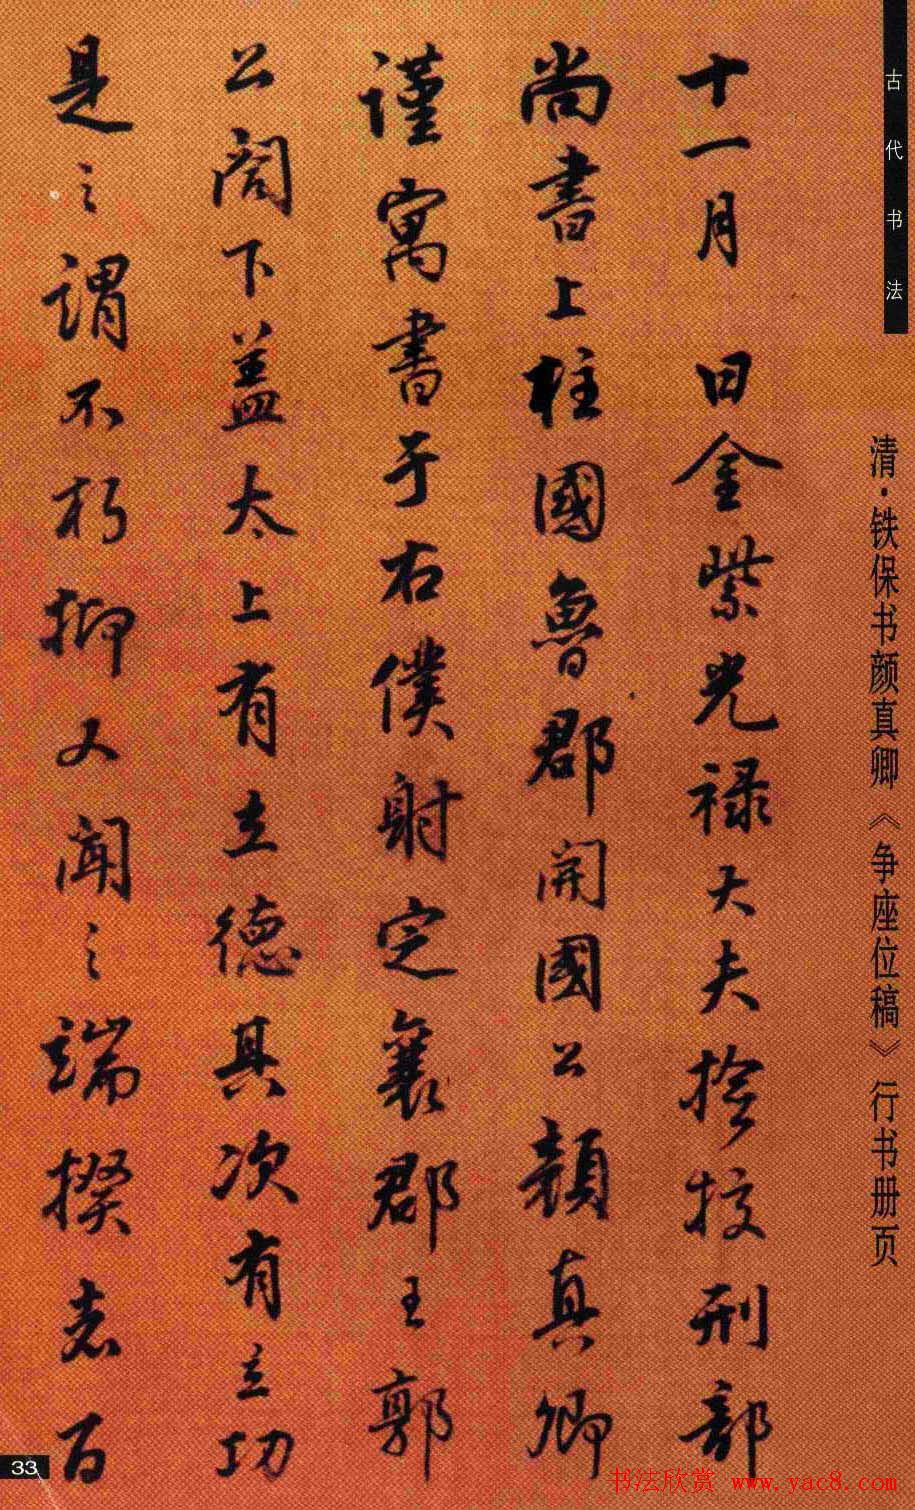 古代书法
清·铁保书颜真卿《争座位稿》行书册页
十一月 日金紫光禄大夫捡挍刑部
尚書上柱國魯郡開國公顏真卿
謹寓書于右僕射定襄郡王郭
公閤下蓋太上有立德其次有立功
是之謂不朽抑又聞之端揆者百
33
书法欣赏 www.yac8.com